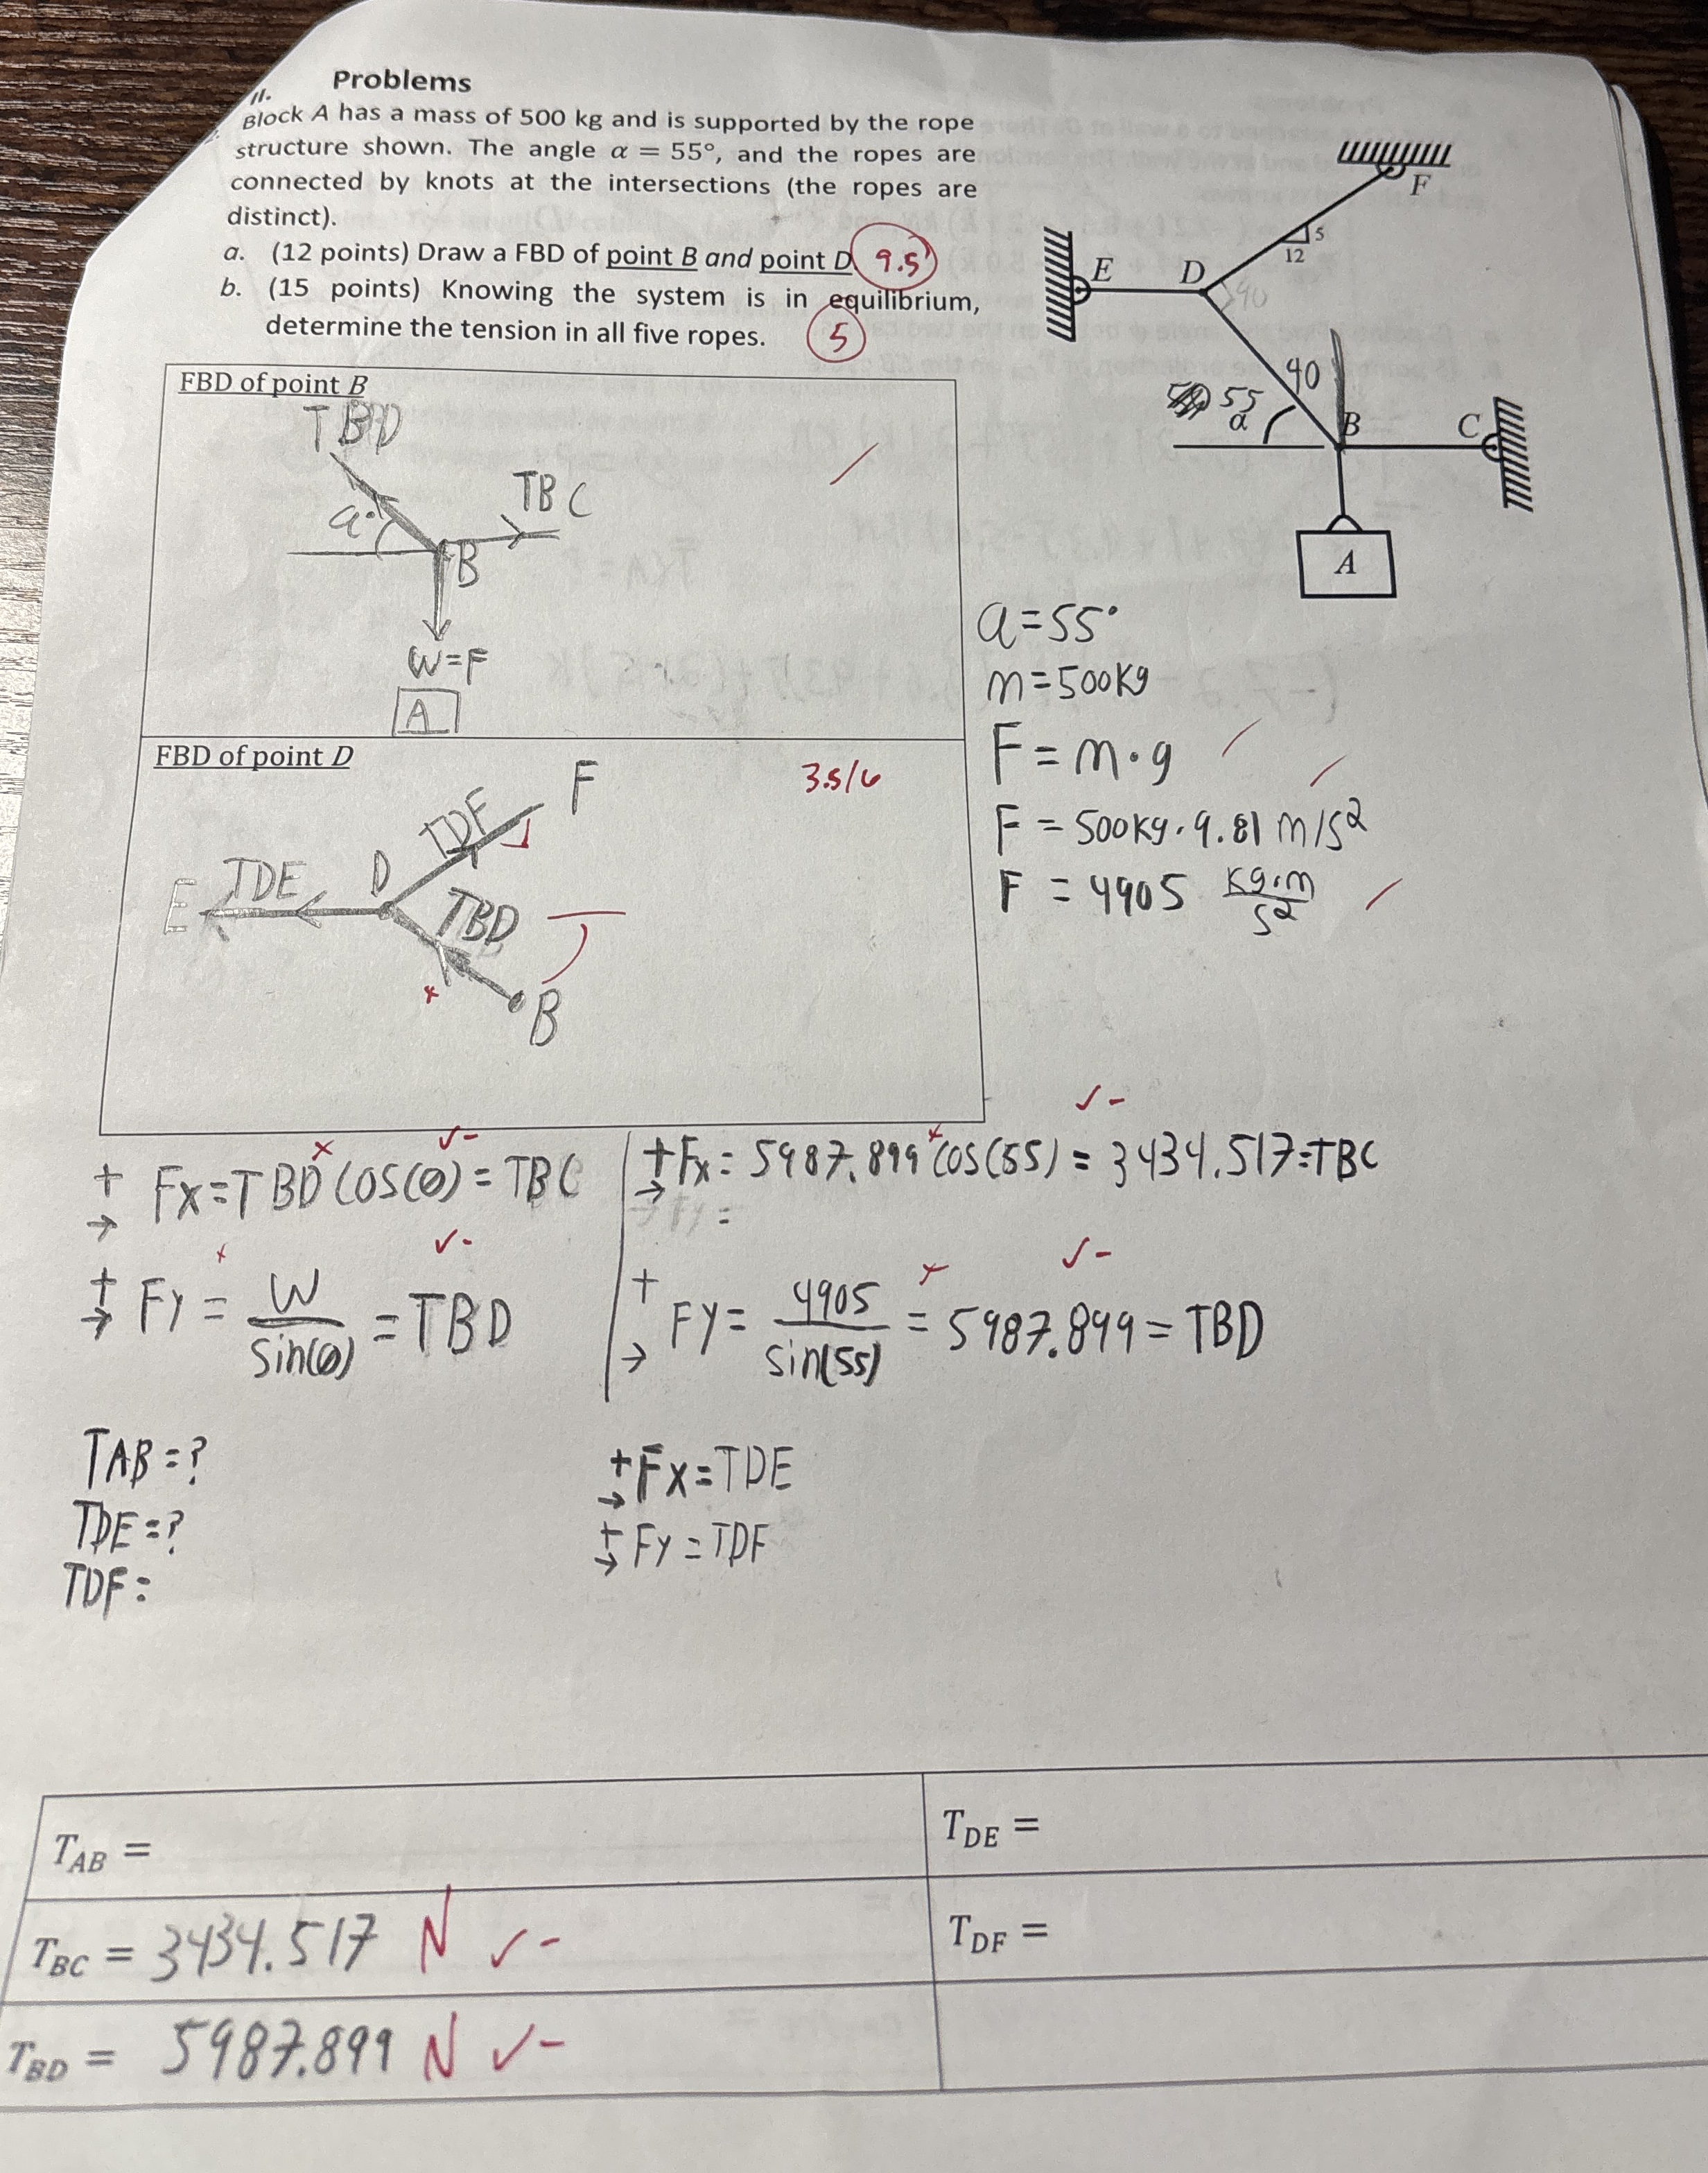 II. Problems
Block A has a mass of 500 kg and is supported by the rope
structure shown. The angle α = 55°, and the ropes are
connected by knots at the intersections (the ropes are
distinct).
a. (12 points) Draw a FBD of point B and point D 9.5
b. (15 points) Knowing the system is in equilibrium,
determine the tension in all five ropes. 5
F
5
12
E
D
90
40
55
α
B
C
A
FBD of point B
TBD
TBC
a°
B
W=F
A
a=55°
m=500kg
F=m·g
F=500kg·9.81 m/s²
F=4905 kg·m/s²
FBD of point D
3.5/6
F
TDF
D
TDE
E
TBD
B
+→ Fx=TBD cos(θ)=TBC
+→ Fx=5987.899 cos(55)=3434.517=TBC
+→ Fy=W/sin(θ)=TBD
+→ Fy=4905/sin(55)=5987.899=TBD
TAB=?
TDE=?
TDF=
+→ Fx=TDE
+→ Fy=TDF
T_AB =
T_DE =
T_BC = 3434.517 N ✓-
T_DF =
T_BD = 5987.899 N ✓-